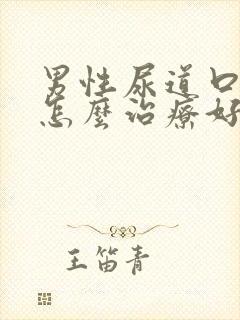 男性尿道口
怎麼治療好
王笛青